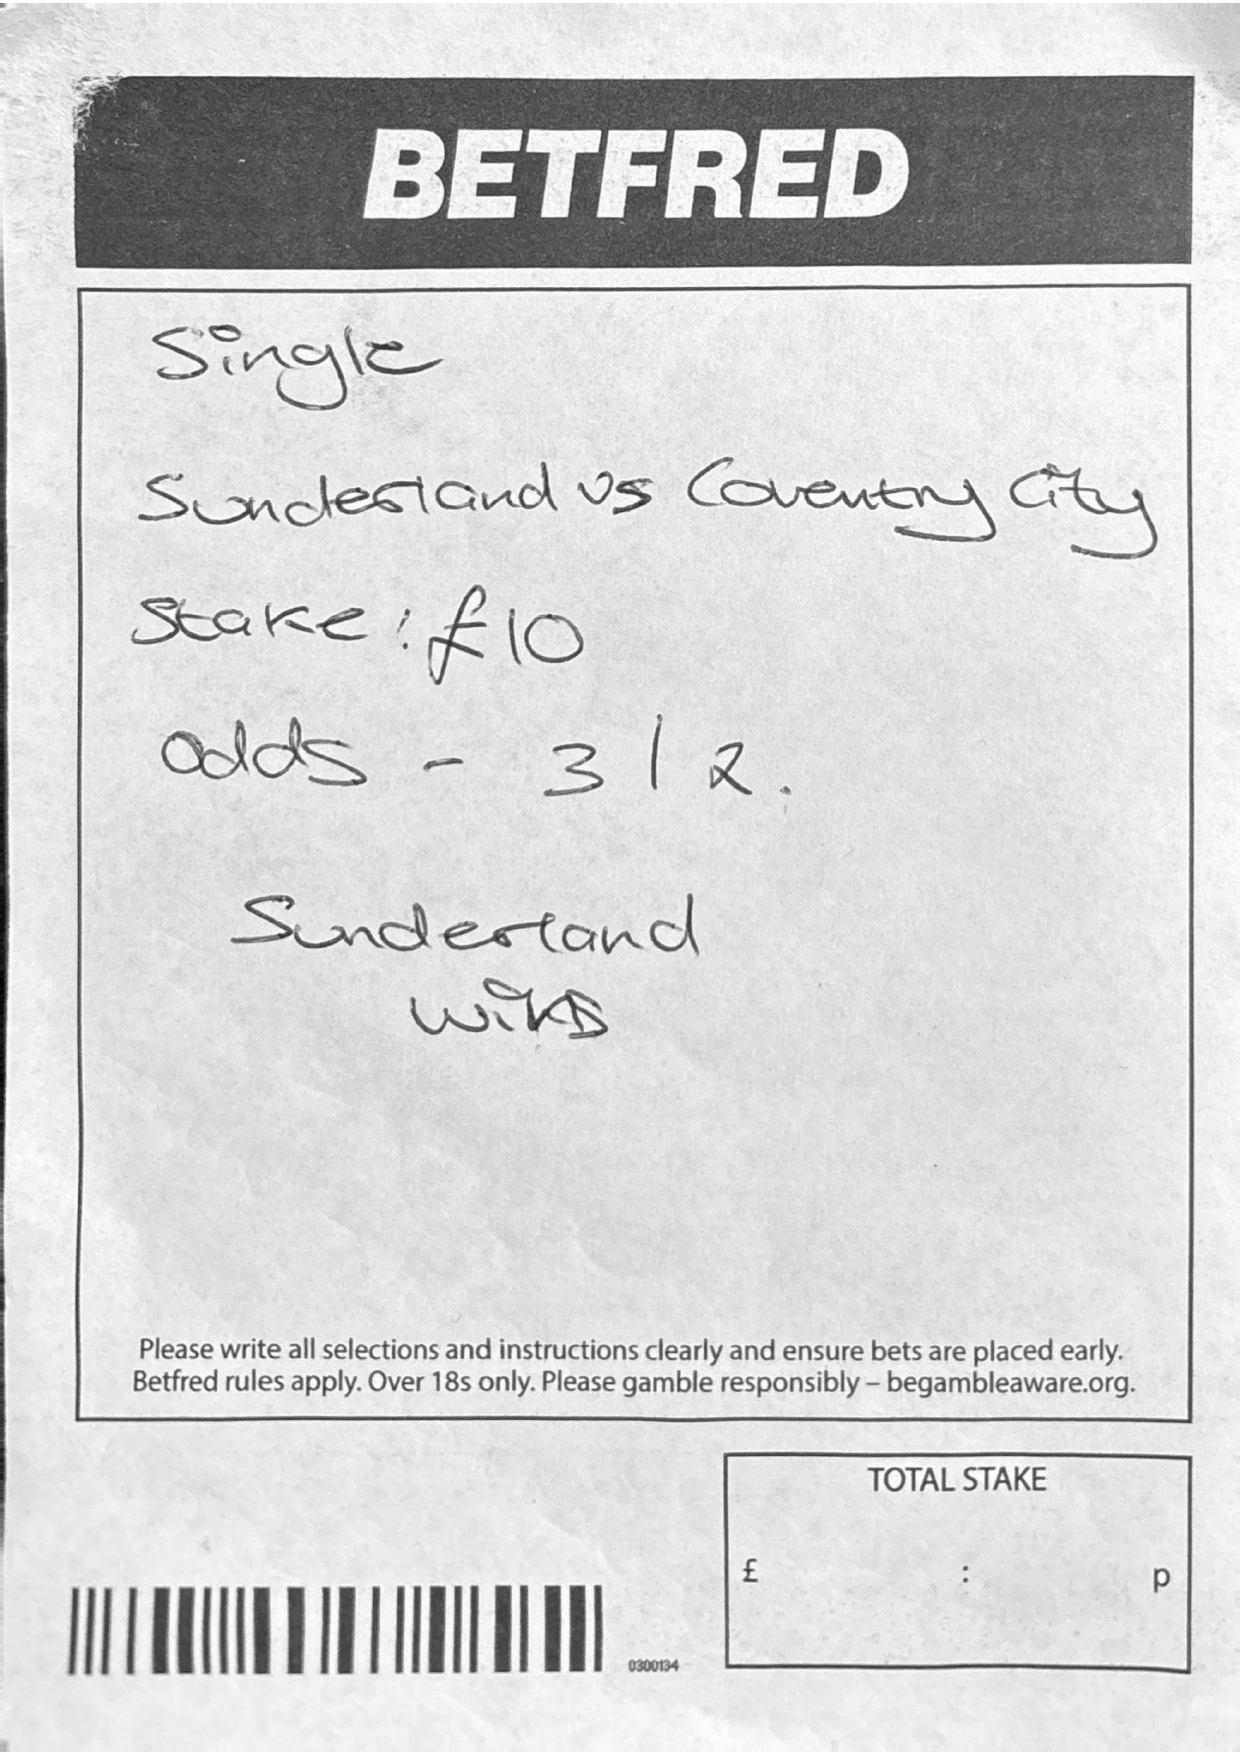 BETFRED
Single
Sunderland vs Coventry City
Stake: £10
odds - 3/2.
Sunderland
wins
Please write all selections and instructions clearly and ensure bets are placed early.
Betfred rules apply. Over 18s only. Please gamble responsibly – begambleaware.org.
TOTAL STAKE
£ : p
0300134